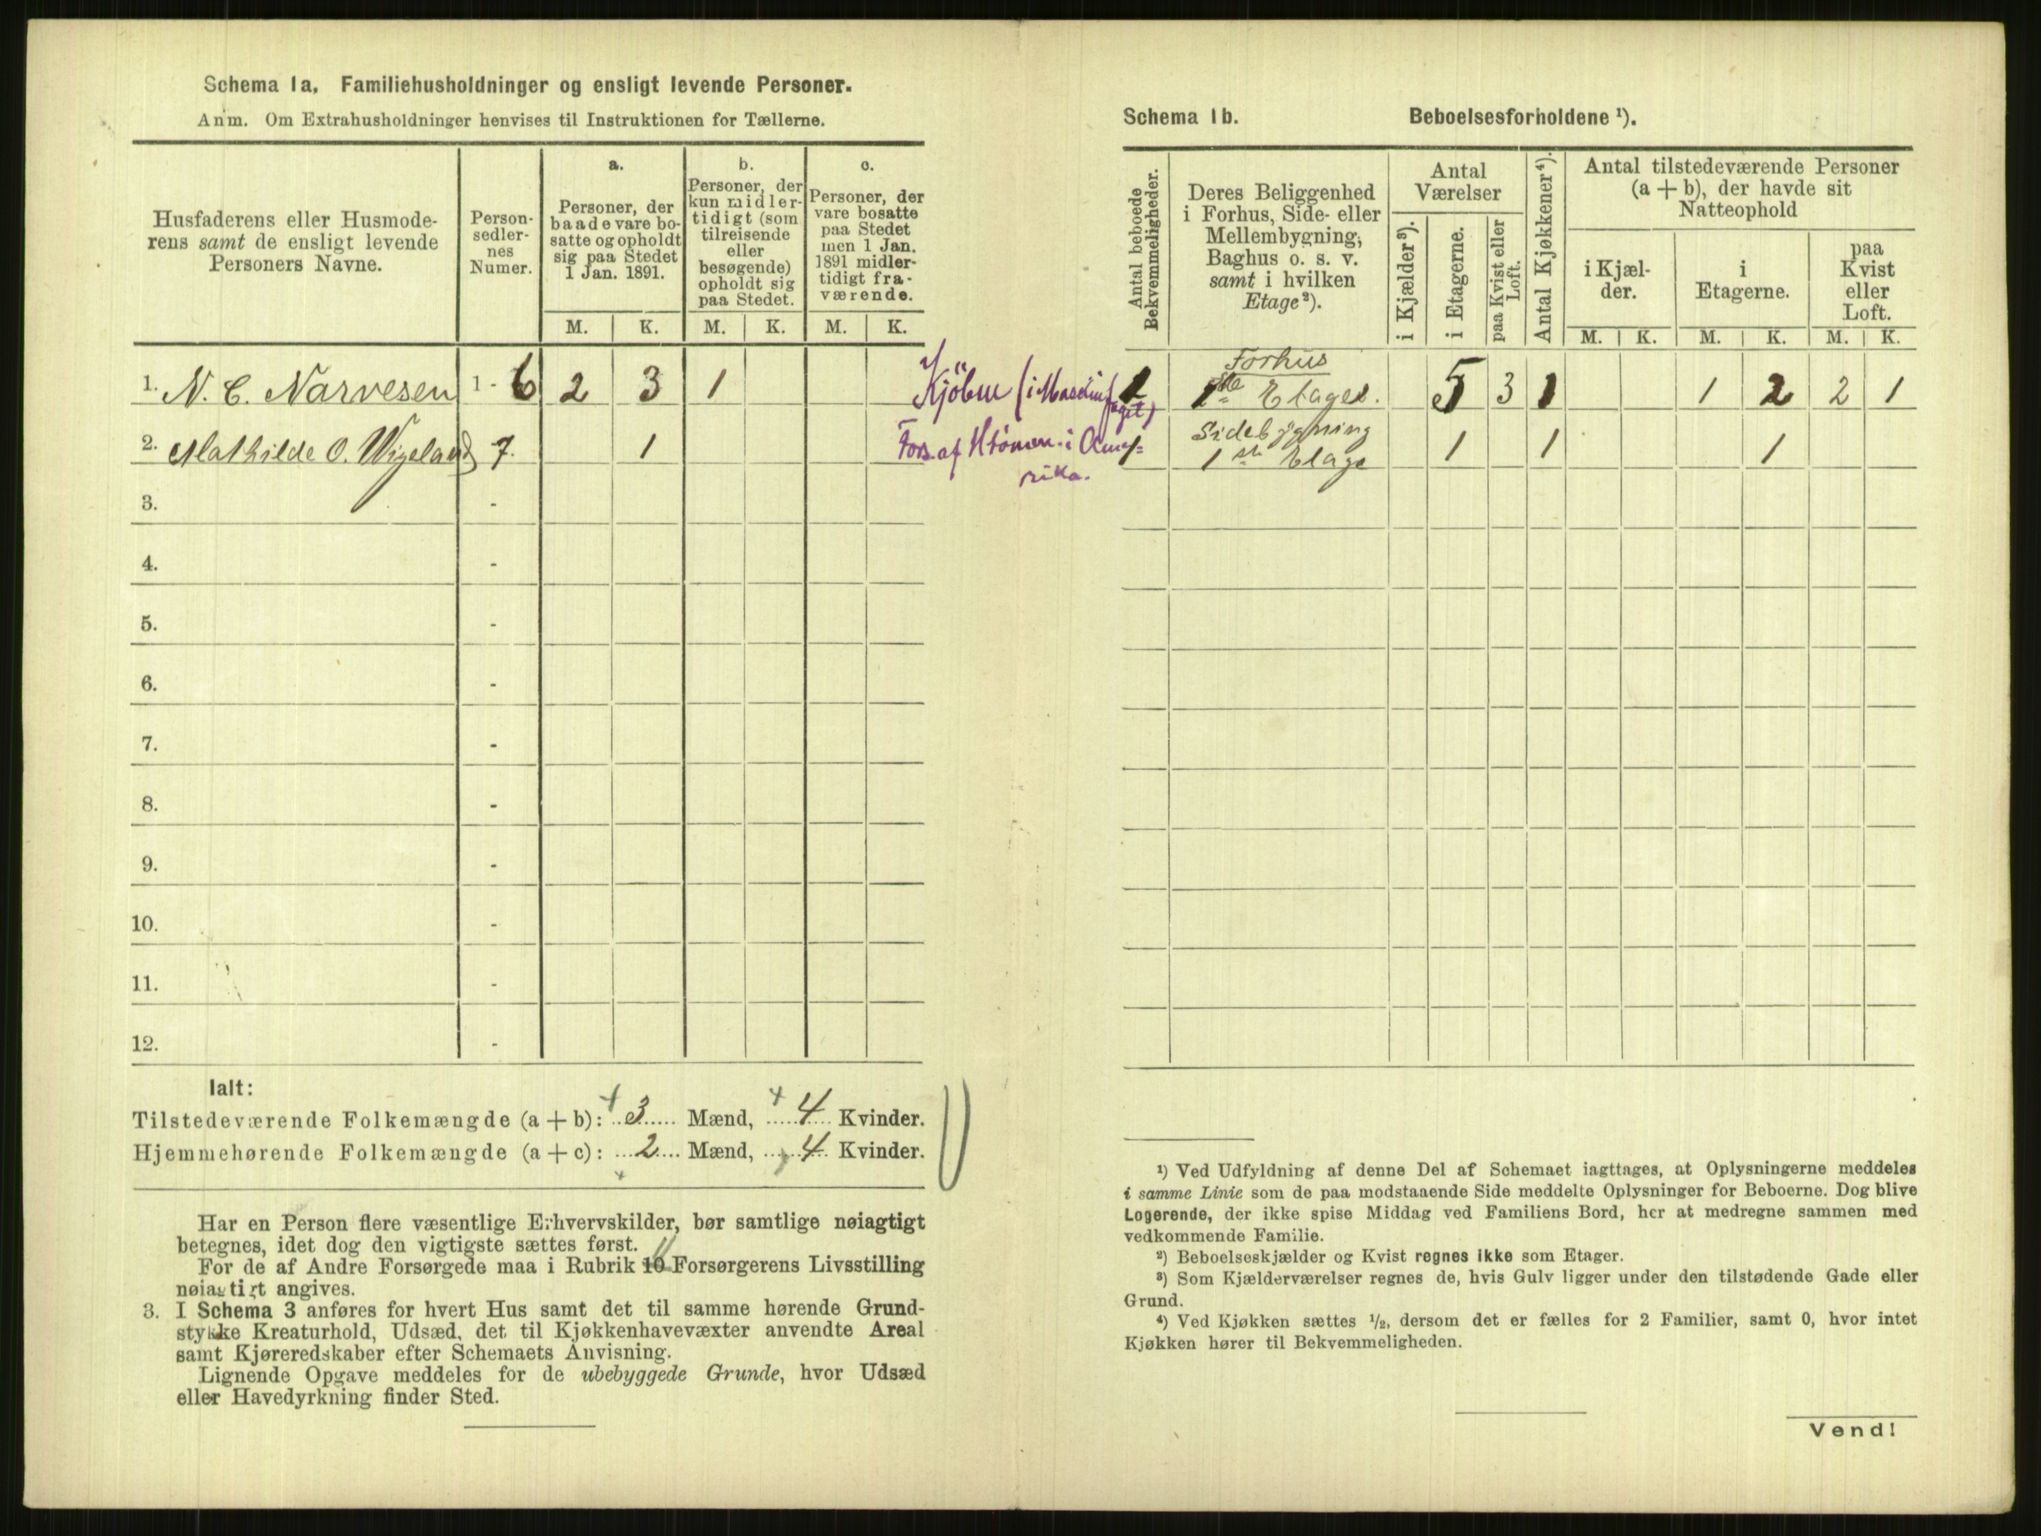 Schema 1a. Familiehusholdninger og ensligt levende Personer.
Anm. Om Extrahusholdninger henvises til Instruktionen for Tællerne.
Husfaderens eller Husmode-
rens samt de ensligt levende
Personers Navne.
Person-
sedler-
nes
Numer.
a.
Personer, der
baade vare bo-
satte og opholdt
sig paa Stedet
1 Jan. 1891.
b.
Personer, der
kun midler-
tidigt (som
tilreisende
eller
besøgende)
opholdt sig
paa Stedet.
c.
Personer, der
vare bosatte
paa Stedet
men 1 Jan.
1891 midler-
tidigt fra-
værende.
M. K. M. K. M. K.
1. N. C. Narvesen 1 - 6 2 3 1
Kjöbm (i
2. Mathilde O. Wigeland 7. 1
Fors. af i Ame-
rika.
3. -
4. -
5. -
6. -
7. -
8. -
9. -
10. -
11. -
12. -
Ialt:
Tilstedeværende Folkemængde (a + b): 3 Mænd, 4 Kvinder.
Hjemmehørende Folkemængde (a + c): 2 Mænd, 4 Kvinder.
Har en Person flere væsentlige Erhvervskilder, bør samtlige nøiagtigt
betegnes, idet dog den vigtigste sættes først.
11
For de af Andre Forsørgede maa i Rubrik 10 Forsørgerens Livsstilling
nøiagtigt angives.
3. I Schema 3 anføres for hvert Hus samt det til samme hørende Grund-
stykke Kreaturhold, Udsæd, det til Kjøkkenhavevæxter anvendte Areal
samt Kjøreredskaber efter Schemaets Anvisning.
Lignende Opgave meddeles for de ubebyggede Grunde, hvor Udsæd
eller Havedyrkning finder Sted.
Schema 1b. Beboelsesforholdene ¹).
Antal beboede
Bekvemmeligheder.
Deres Beliggenhed
i Forhus, Side- eller
Mellembygning,
Baghus o. s. v.
samt i hvilken
Etage²).
Antal
Værelser
i Kjælder³).
i Etagerne.
paa Kvist eller
Loft.
Antal Kjøkkener⁴).
Antal tilstedeværende Personer
(a + b), der havde sit
Natteophold
i Kjæl-
der.
i
Etagerne.
paa
Kvist
eller
Loft.
M. K. M. K. M. K.
Forhus
1 1ste Etages. 5 3 1 1 2 2 1
Sidebygning
1 1ste Etage 1 1 1
¹) Ved Udfyldning af denne Del af Schemaet iagttages, at Oplysningerne meddeles
i samme Linie som de paa modstaaende Side meddelte Oplysninger for Beboerne. Dog blive
Logerende, der ikke spise Middag ved Familiens Bord, her at medregne sammen med
vedkommende Familie.
²) Beboelseskjælder og Kvist regnes ikke som Etager.
³) Som Kjælderværelser regnes de, hvis Gulv ligger under den tilstødende Gade eller
Grund.
⁴) Ved Kjøkken sættes ½, dersom det er fælles for 2 Familier, samt 0, hvor intet
Kjøkken hører til Bekvemmeligheden.
Vend!